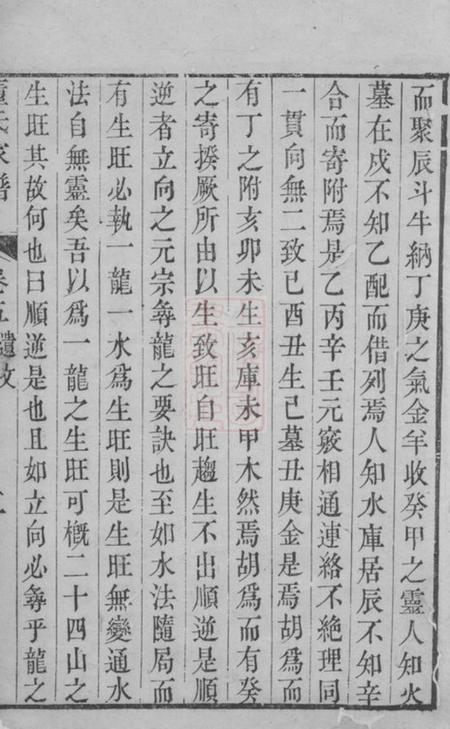 而聚辰斗牛納丁庚之氣金羊收癸甲之靈人知火
墓在戍不知乙配而借列焉人知水庫居辰不知辛
合而寄附焉是乙丙辛壬元竅相通連絡不絕理同
一貫向無二致已酉丑生已墓丑庚金是焉胡為而
有丁之附亥卯未生亥庫未甲木然焉胡為而有癸
之寄揆厥所由以生致旺自旺趨生不出順逆是順
逆者立向之元宗尋龍之要訣也至如水法隨局而
有生旺必執一龍一水為生旺則是生旺無變通水
法自無靈矣吾以為一龍之生旺可概二十四山之
生旺其故何也曰順逆是也且如立向必尋乎龍之
家譜
卷五遺文